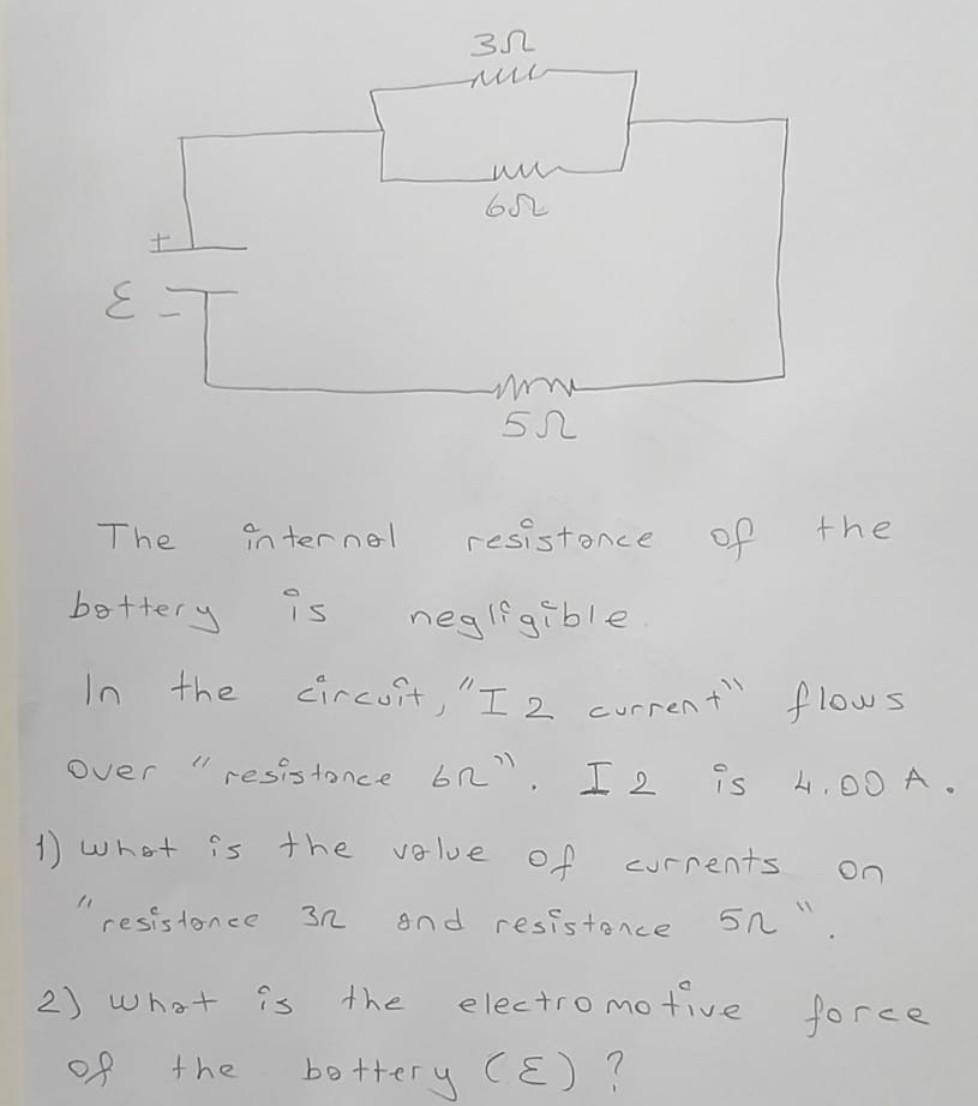 3Ω
6Ω
+
ε -
5Ω
The internal resistance of the
battery is negligible.
In the circuit, "I 2 current" flows
over "resistance 6Ω". I 2 is 4.00 A.
1) what is the value of currents on
"resistance 3Ω and resistance 5Ω".
2) what is the electromotive force
of the battery (ε) ?